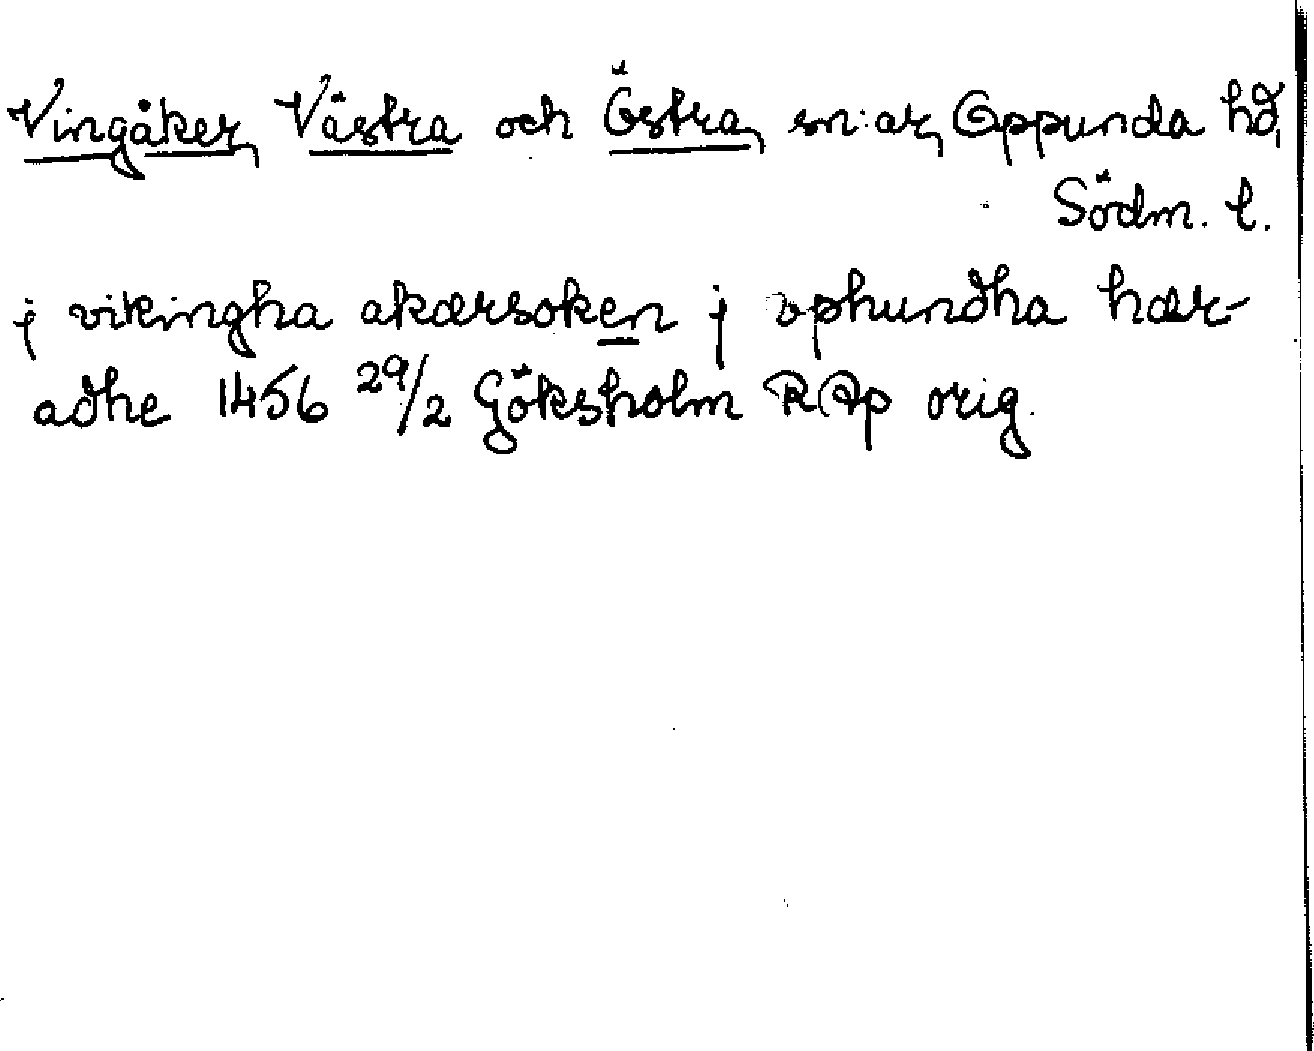 Vingåker, Västra och Östra, sn:ar, Oppunda hd,
Södm. l.
j vikingha akærsoken j ophundha hær-
adhe 1456 29/2 Göksholm RAp orig.